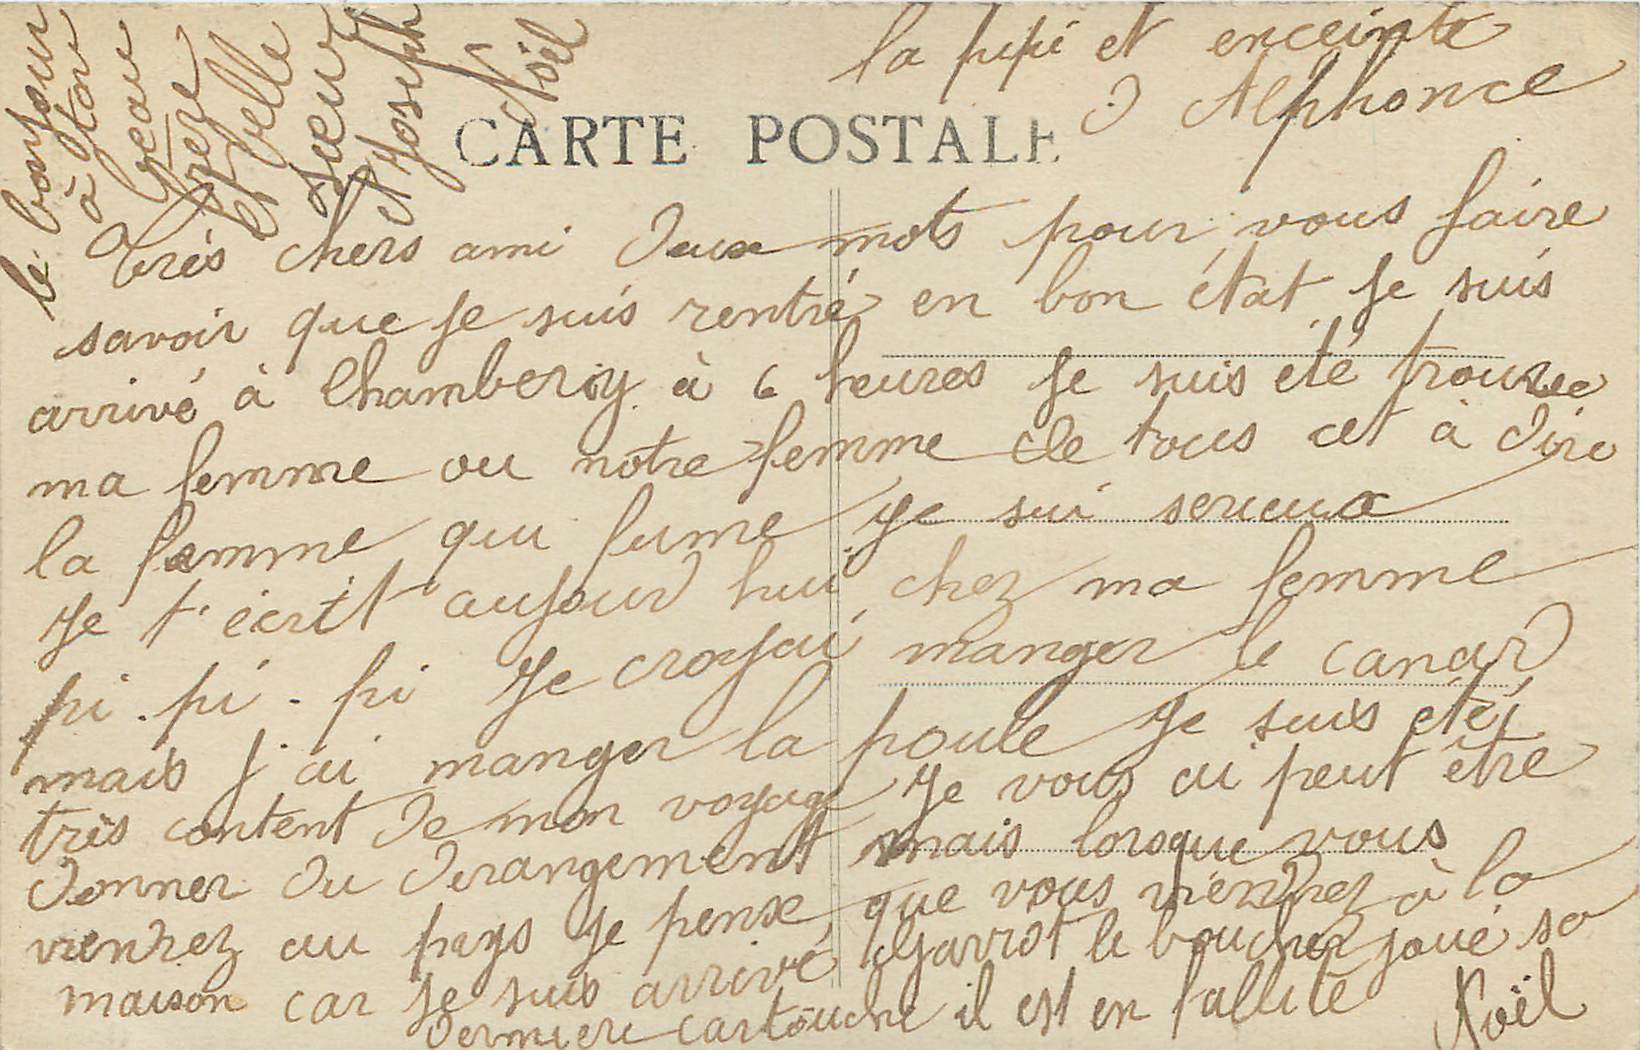 la pipi et enceinte
D Alphonce
CARTE POSTALE
le bonjour
à ston
Noël
et Joseph
très chers ami Deux mots pour vous faire
savoir que je suis rentré en bon état je suis
arrivé à Chambery à 6 heures je suis été trouvee
ma femme ou notre femme de tous cet à Dire
la femme qui fume je sui serieux
je t'écrit aujourd hui chez ma femme
pi . pi . pi je croyai manger le canard
mais j'ai manger la poule je suis été
très content De mon voyage je vous ai peut être
Donner Du Derangement mais lorsque vous
viendrez au pays je pense que vous viendrez à la
maison car je suis arrivé Garrot le boucher joué sa
Derniere cartouche il est en fallite Noël